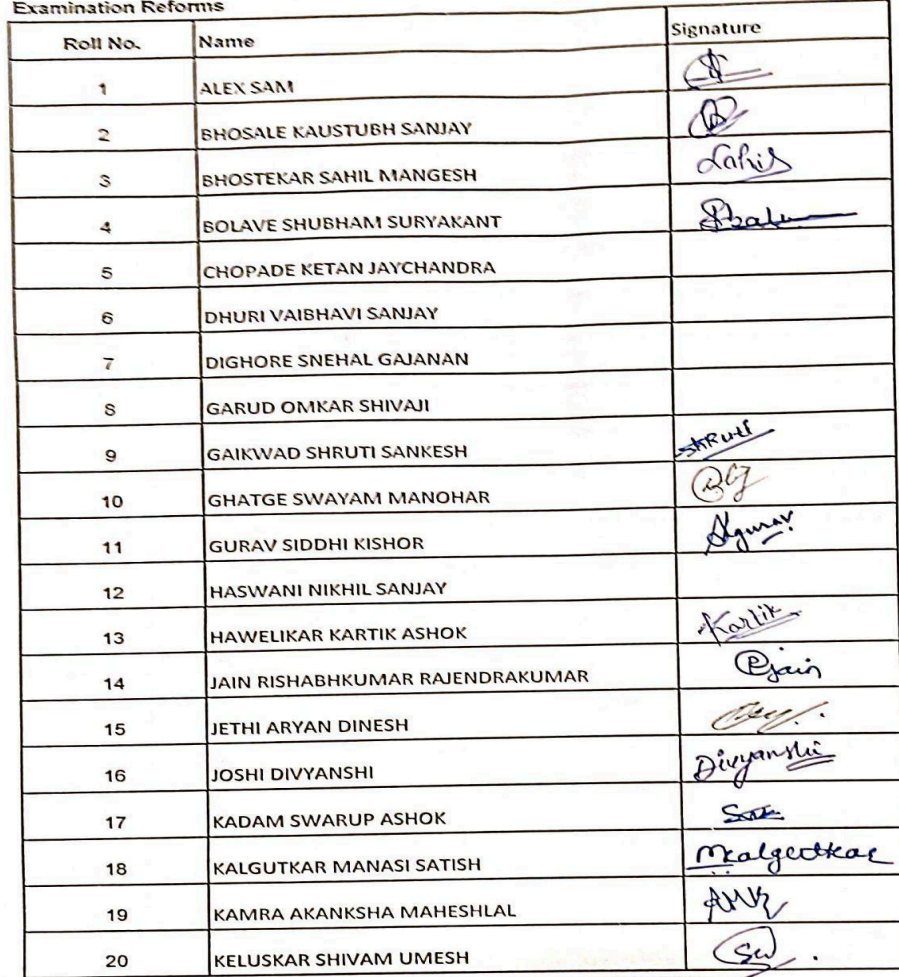 Examination Reforms
Roll No. Name Signature
1 ALEX SAM
2 BHOSALE KAUSTUBH SANJAY
3 BHOSTEKAR SAHIL MANGESH Sahil
4 BOLAVE SHUBHAM SURYAKANT
5 CHOPADE KETAN JAYCHANDRA
6 DHURI VAIBHAVI SANJAY
7 DIGHORE SNEHAL GAJANAN
8 GARUD OMKAR SHIVAJI
9 GAIKWAD SHRUTI SANKESH ShRuti
10 GHATGE SWAYAM MANOHAR
11 GURAV SIDDHI KISHOR Sgurav
12 HASWANI NIKHIL SANJAY
13 HAWELIKAR KARTIK ASHOK Kartik
14 JAIN RISHABHKUMAR RAJENDRAKUMAR Rjain
15 JETHI ARYAN DINESH
16 JOSHI DIVYANSHI Divyanshi
17 KADAM SWARUP ASHOK
18 KALGUTKAR MANASI SATISH Mkalgutkar
19 KAMRA AKANKSHA MAHESHLAL
20 KELUSKAR SHIVAM UMESH